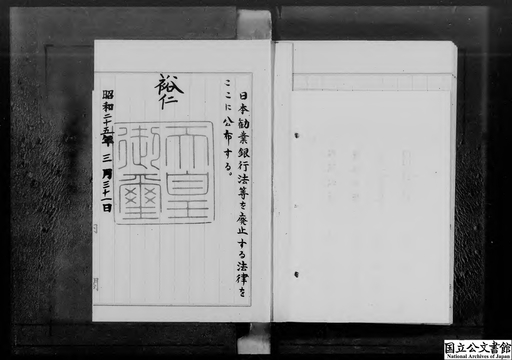 日本勧業銀行法等を廃止する法律を
ここに公布する。
裕仁
天皇
御璽
昭和二十五年三月三十一日
国立公文書館
National Archives of Japan